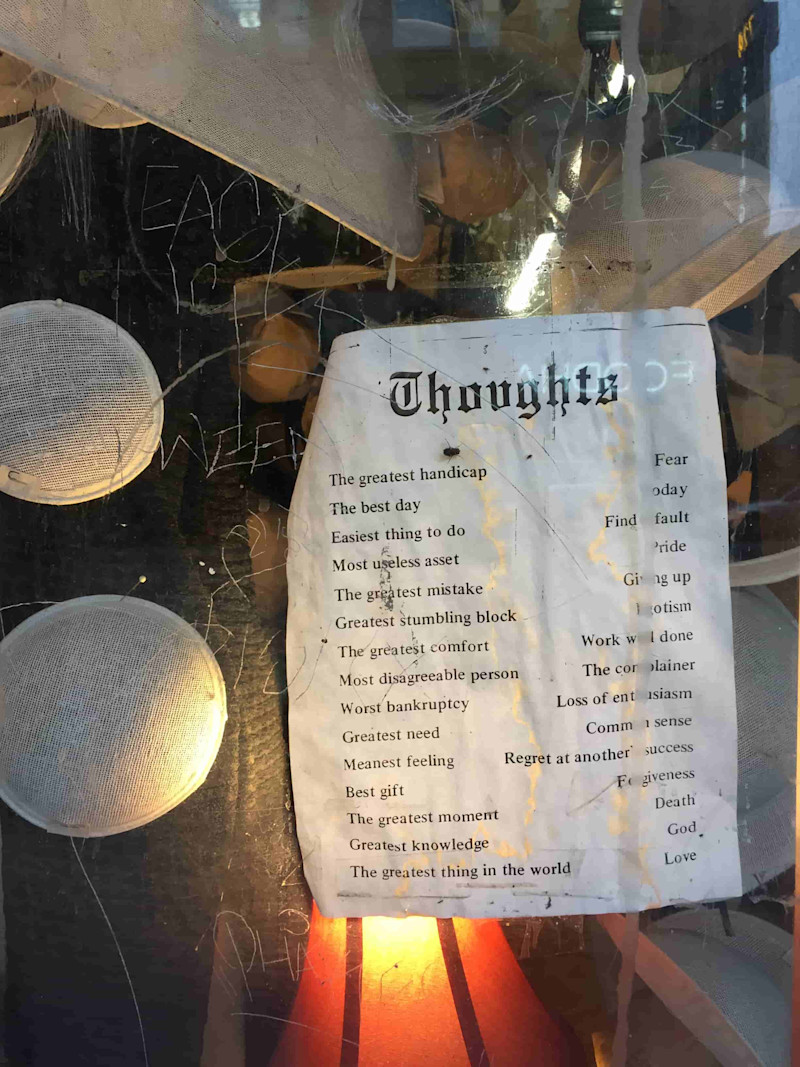 Thoughts
The greatest handicap Fear
The best day Today
Easiest thing to do Finding fault
Most useless asset Pride
The greatest mistake Giving up
Greatest stumbling block Egotism
The greatest comfort Work well done
Most disagreeable person The complainer
Worst bankruptcy Loss of enthusiasm
Greatest need Common sense
Meanest feeling Regret at another's success
Best gift Forgiveness
The greatest moment Death
Greatest knowledge God
The greatest thing in the world Love